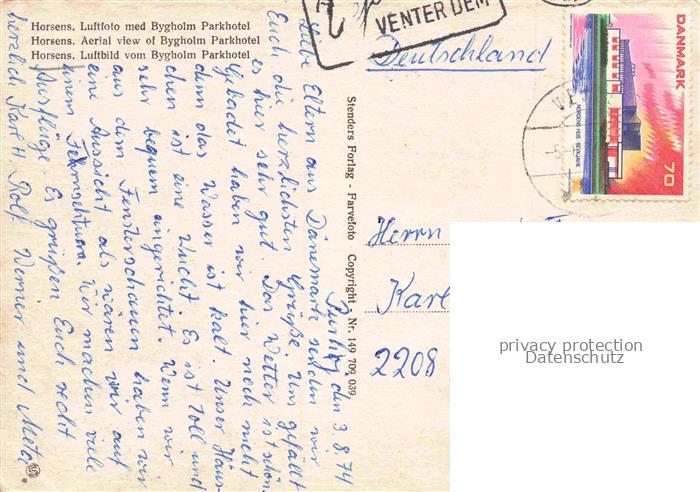 Horsens. Luftfoto med Bygholm Parkhotel
Horsens. Aerial view of Bygholm Parkhotel
Horsens. Luftbild vom Bygholm Parkhotel
VENTER DEM
DANMARK
70
NORDENS HUS REYKJAVIK
Deutschland
Stenders Forlag - Farvefoto Copyright - Nr. 149 709 039
Herrn
Karl
2208
privacy protection
Datenschutz
den 3.8.74
Liebe Eltern aus Dänemark senden wir
Euch die herzlichsten Grüße. Uns gefällt
es hier sehr gut. Das Wetter ist schön.
Gebadet haben wir hier noch nicht
denn das Wasser ist kalt. Unser Häus-
chen ist eine Wucht. Es ist toll und
sehr bequem eingerichtet. Wenn wir
aus dem Fenster schauen haben wir
eine Aussicht als wären wir auf
einem Fernsehturm. Wir machen viele
Ausflüge. Es grüßen Euch recht
herzlich Karl H. Rolf Werner und Meta